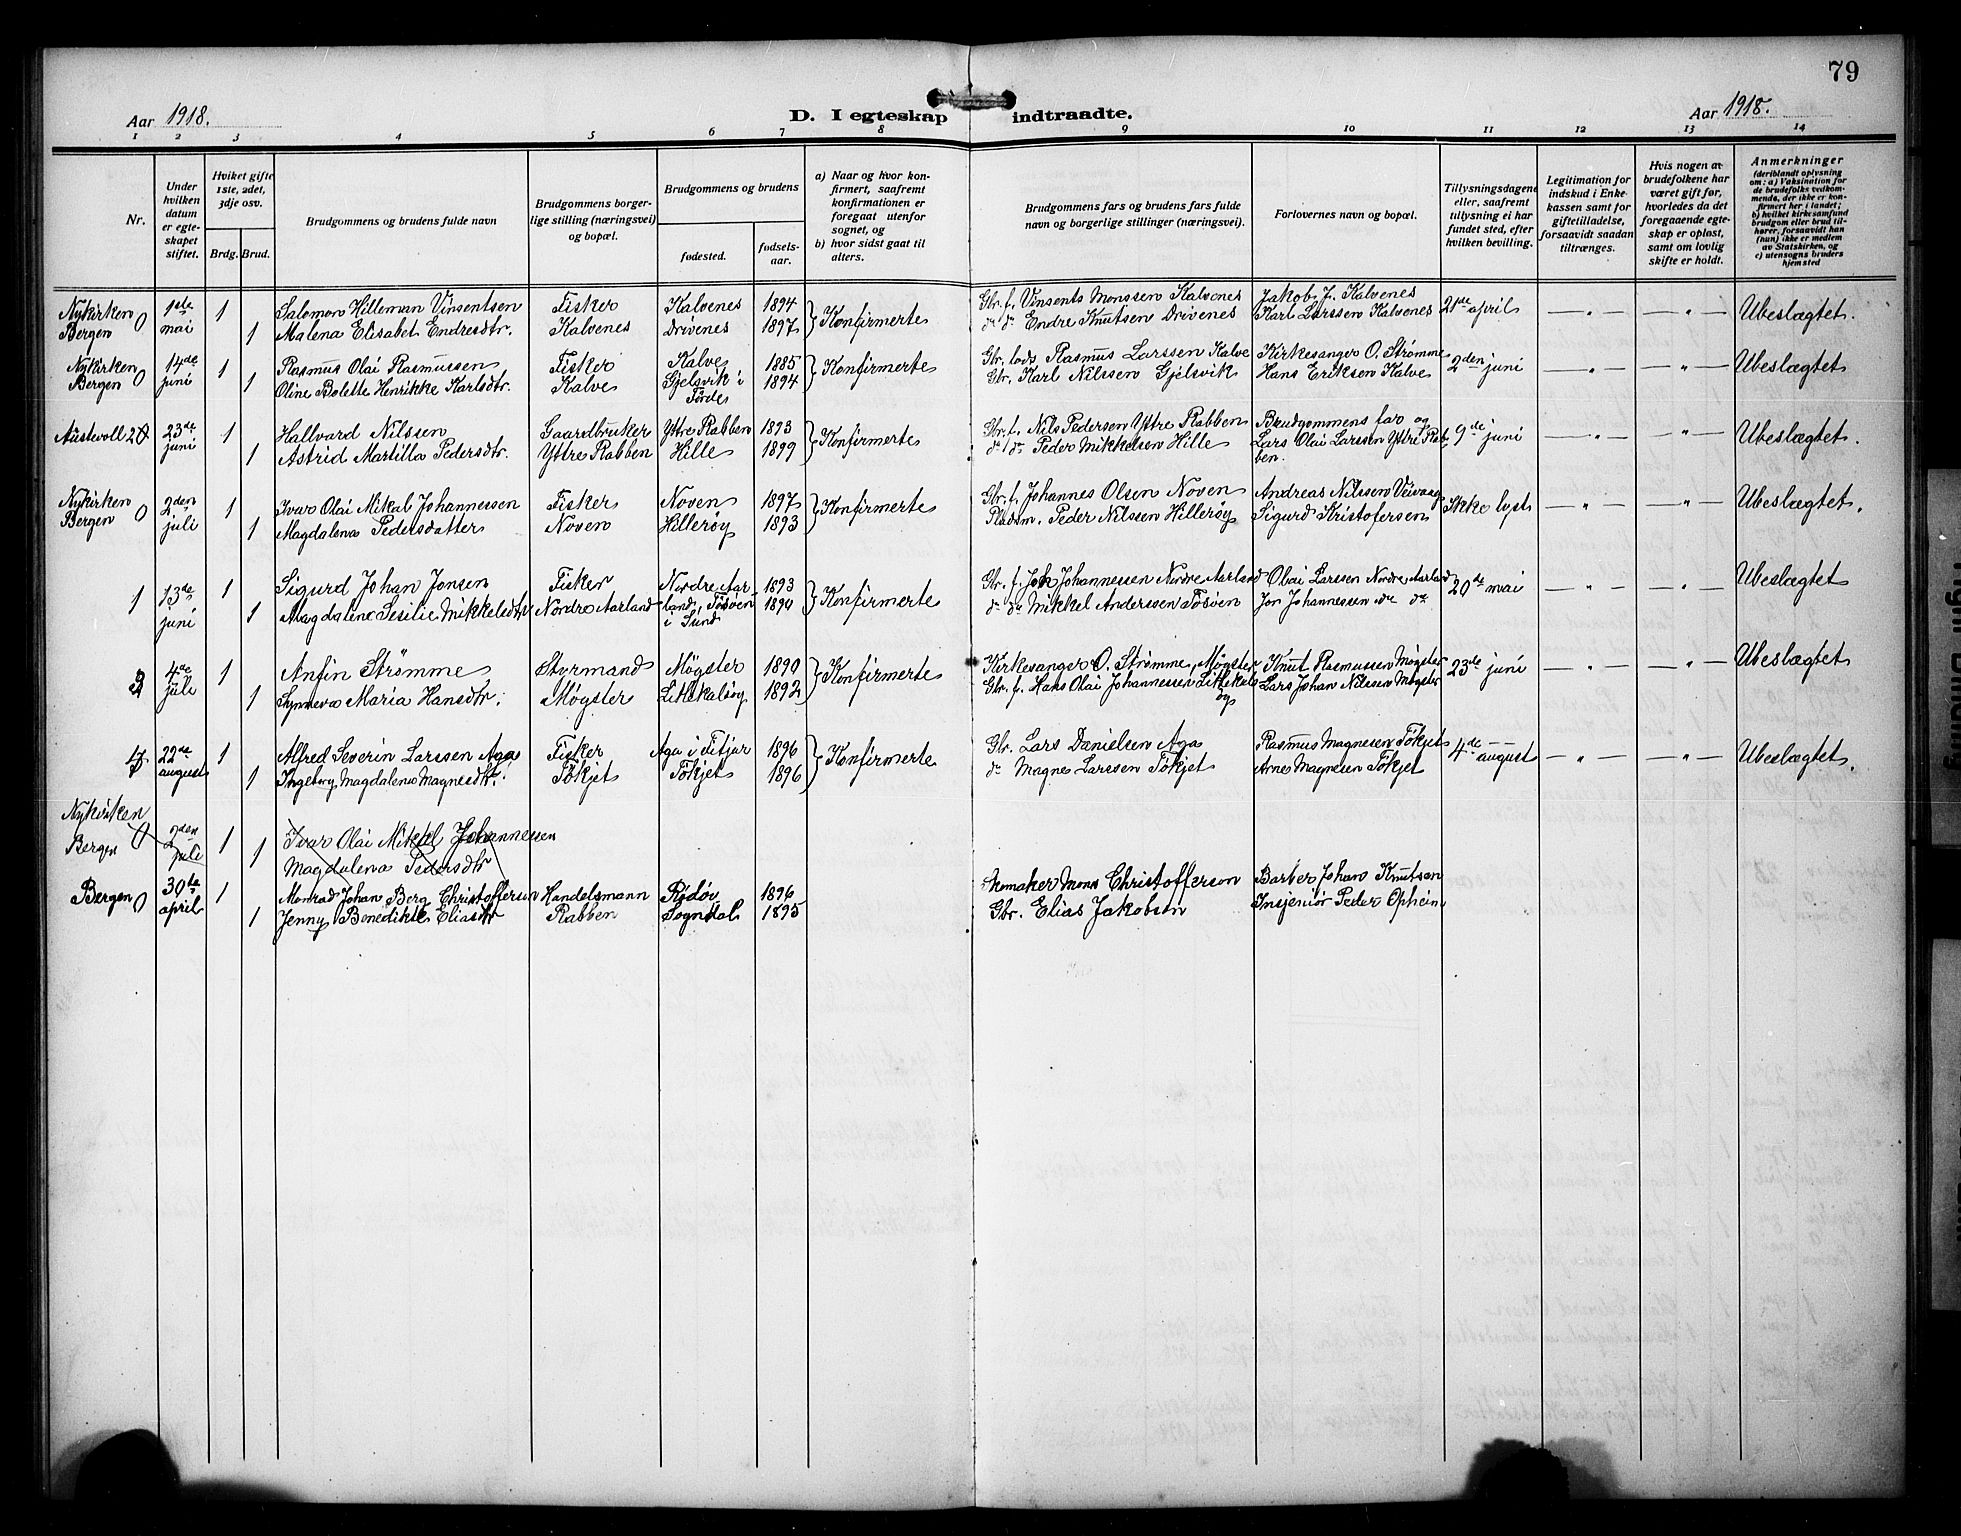 79
Aar 1918.
D. I egteskap indtraadte.
Aar 1918.
1 2 3 4 5 6 7 8 9 10 11 12 13 14
Nr.
Under hvilken datum er egteskapet stiftet.
Hviket gifte 1ste, 2det, 3dje osv.
Brdg. Brud.
Brudgommens og brudens fulde navn
Brudgommens borgerlige stilling (næringsvei) og bopæl.
Brudgommens og brudens
fødested.
fødselsaar.
a) Naar og hvor konfirmert, saafremt konfirmationen er foregaat utenfor sognet, og
b) hvor sidst gaat til alters.
Brudgommens fars og brudens fars fulde navn og borgerlige stillinger (næringsvei).
Forlovernes navn og bopæl.
Tillysningsdagene eller, saafremt tillysning ei har fundet sted, efter hvilken bevilling.
Legitimation for indskud i Enkekassen samt for giftetilladelse, forsaavidt saadan tiltrænges.
Hvis nogen av brudefolkene har været gift før, hvorledes da det foregaaende egteskap er opløst, samt om lovlig skifte er holdt.
Anmerkninger
(deriblandt oplysning om: a) Vaksination for de brudefolks vedkommende, der ikke er konfirmert her i landet; b) hvilket kirkesamfund brudgom eller brud tilhører, forsaavidt han (hun) ikke er medlem av Statskirken, og c) utensogns bruders hjemsted
Nykirken 0 1ste 1 Salomon Hilleman Vinsentsen Fisker Kalvenes 1894 } Konfirmerte Gbr. f. Vinsents Monssen Kalvenes Jakob J. Kalvenes 21de april — " — — " — Ubeslægtet.
Bergen mai 1 Malena Elisabet Endresdtr. Kalvenes Drivenes 1897 do do Endre Knutsen Drivenes Karl Larssen Kalvenes
Nykirken 14de 1 Rasmus Olai Rasmussen Fisker Kalve 1885 } Konfirmerte Gbr. lods Rasmus Larssen Kalve Kirkesanger O. Strømme 2den juni — " — — " — Ubeslægtet
Bergen 0 juni 1 Oline Bolette Henrikke Karlsdtr. Kalve Gjelsvik i Førde 1894 Gbr. Karl Nilssen Gjelsvik Hans Eriksen Kalve
Austevoll 2 0 23de 1 Hallvard Nilssen Gaardbruker Yttre Rabben 1893 } Konfirmerte Gbr. f. Nils Pedersen Yttre Rabben Brudgommens far og 9de juni — " — — " — Ubeslægtet.
juni 1 Astrid Martilla Pedersdtr. Yttre Rabben Hille 1899 do do Peder Mikkelsen Hille Lars Olai Larssen Yttre Rabben.
Nykirken 0 2den 1 Ivar Olai Mikal Johannessen Fisker Noven 1897 } Konfirmerte Gbr. f. Johannes Olsen Noven Andreas Nilssen Ikke lyst — " — — " — Ubeslægtet.
Bergen juli 1 Magdalena Pedersdatter Noven Hillerøy 1893 Pladsm. Peder Nilssen Hillerøy Sigurd Kristofersen
1 13de 1 Sigurd Johan Jonsen Fisker Nordre Aarland, 1893 } Konfirmerte Gbr. f. Johannessen Nordre Aarland Olai Larssen Nordre Aarland 20de mai — " — — " — Ubeslægtet
juni 1 Magdalena Sesilie Mikkelsdtr Nordre Aarland Tøsøen i Sund 1894 do do Mikkel Anderssen Tøsøen Jon Johannessen do do
3 4de 1 Anfin Strømme Styrmand Møgster 1890 } Konfirmerte Kirkesanger O. Strømme, Møgster Knut Rasmussen Møgster 23de juni — " — — " — Ubeslægtet
juli 1 Synneva Maria Hansdtr. Møgster Litlekalsøy 1892 Gbr. f. Hans Olai Johannessen Litlekalsøy Lars Johan Nilssen Møgster
4 22de 1 Alfred Severin Larssen Aga Fisker Aga i Fitjar 1896 } Konfirmerte Gbr. Lars Danielsen Aga Rasmus Magnesen Tøkjet 4de august — " — — " — Ubeslægtet.
august 1 Ingeborg Magdalena Magnesdtr. Tøkjet Tøkjet 1896 do Magnes Larssen Tøkjet Arnes Magnesen Tøkjet
Nykirken 0 2den 1 Ivar Olai Mikkel Johannessen
Bergen juli 1 Magdalena Pedersdtr
Bergen 0 30te 1 Monrad Johan Berg Christoffersen Handelsmann Rødøy 1896 Skomaker Mons Christofferson Barber Johan Knutsen
april 1 Jenny Benedikte Eliasdtr Rabben Sogndal 1895 Gbr. Elias Jakobsen Insjeniør Peder Opheim